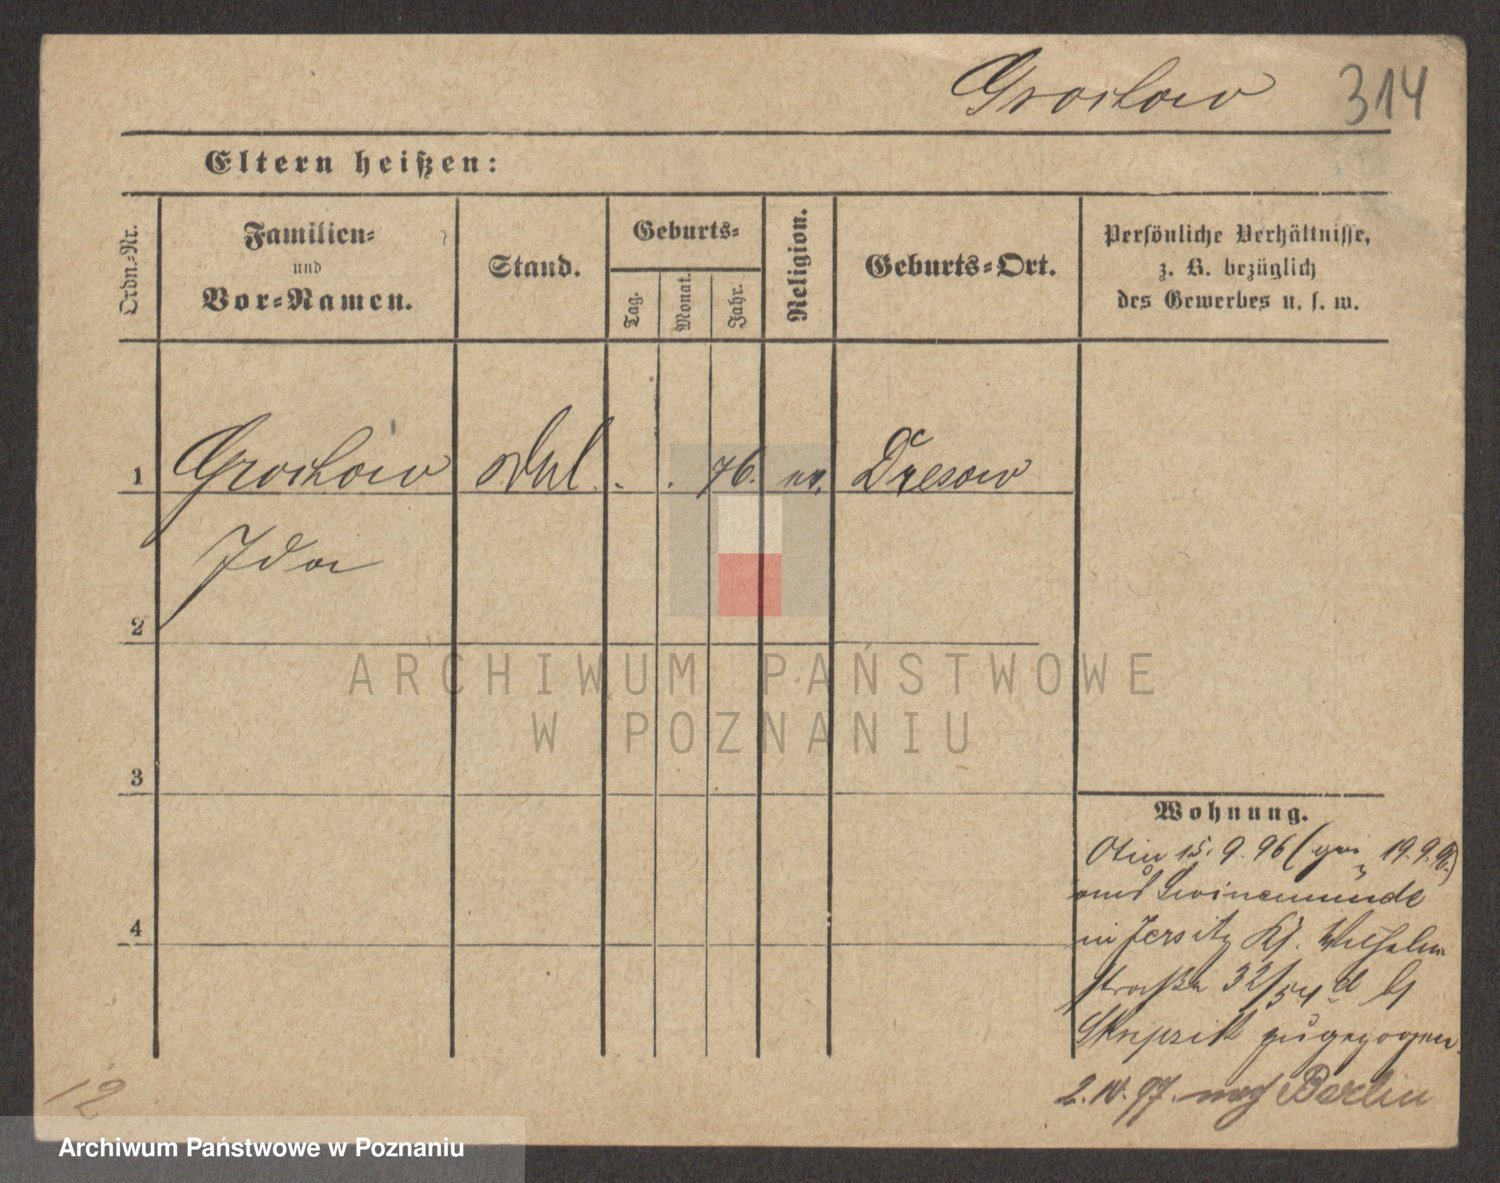 Grochow 314
Eltern heißen:
Ordn.-Nr.
Familien-
und
Vor-Namen.
Stand.
Geburts-
Tag.
Monat.
Jahr.
Religion.
Geburts-Ort.
Persönliche Verhältnisse,
z. B. bezüglich
des Gewerbes u. s. w.
1 Grochow . . 76. ev. Dresow
Ida
2
3
4
ARCHIWUM PAŃSTWOWE
W POZNANIU
Wohnung.
15. 9. 96 ( 19. 9. 96)
aus Swinemünde
in Jersitz Ks. Wilhelm
straße 32/54 d b/
zugezogen.
2. IV. 97. nach Berlin
12
Archiwum Państwowe w Poznaniu